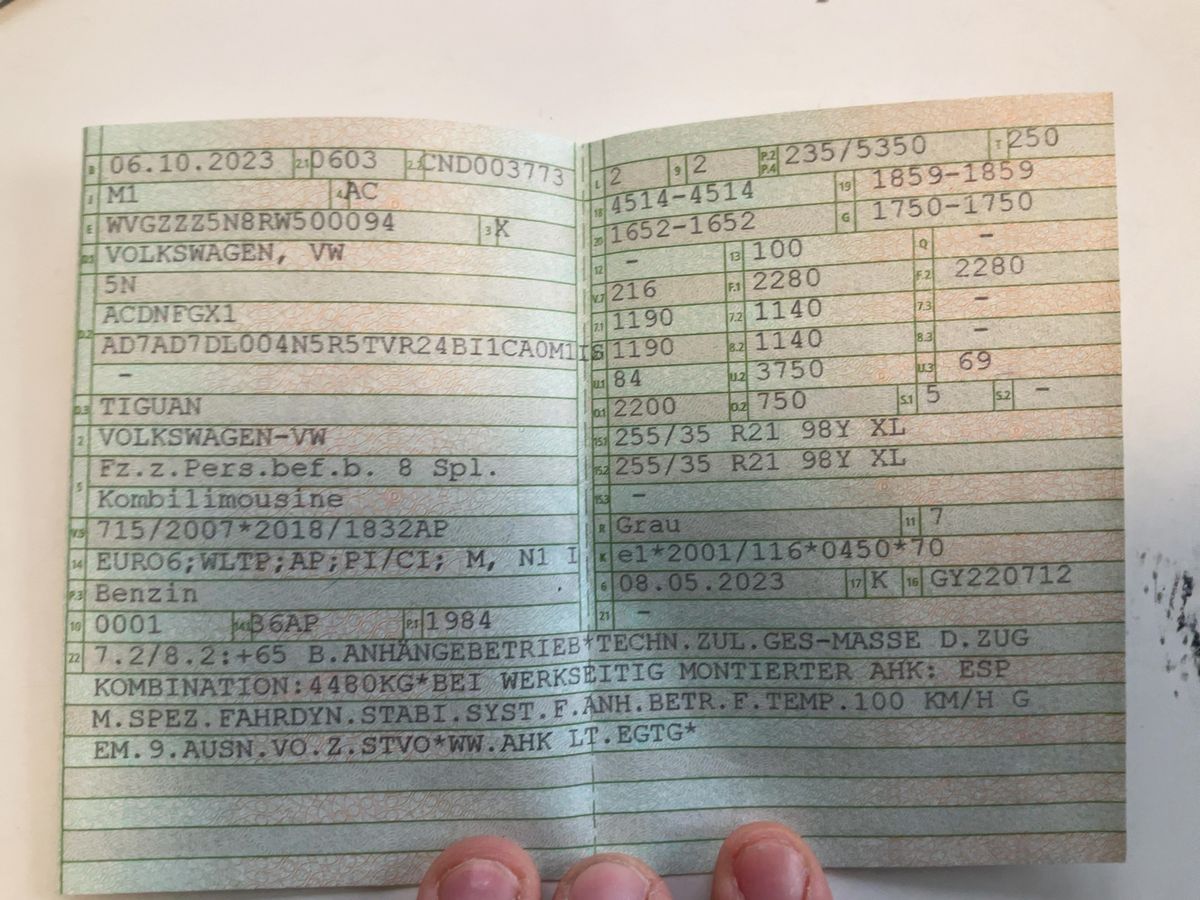 B 06.10.2023 2.1 0603 2.2 CND003773
J M1 4 AC
E WVGZZZ5N8RW500094 3 X
D.1 VOLKSWAGEN, VW
5N
ACDNFGX1
D.2 AD7AD7DL004N5R5TVR24BI1CA0M1IS
–
D.3 TIGUAN
2 VOLKSWAGEN-VW
5 Fz.z.Pers.bef.b. 8 Spl.
Kombilimousine
V.9 715/2007*2018/1832AP
14 EURO6;WLTP;AP;PI/CI; M, N1 I
P.3 Benzin
10 0001 14.1 36AP P.1 1984
L 2 9 2 P.2 P.4 235/5350 T 250
18 4514-4514 19 1859-1859
20 1652-1652 G 1750-1750
12 – 13 100 Q –
V.7 216 F.1 2280 F.2 2280
7.1 1190 7.2 1140 7.3 –
8.1 1190 8.2 1140 8.3 –
U.1 84 U.2 3750 U.3 69
O.1 2200 O.2 750 S.1 5 S.2 –
15.1 255/35 R21 98Y XL
15.2 255/35 R21 98Y XL
15.3 –
R Grau 11 7
K e1*2001/116*0450*70
6 08.05.2023 17 K 16 GY220712
21 –
22 7.2/8.2:+65 B.ANHÄNGEBETRIEB*TECHN.ZUL.GES-MASSE D.ZUG
KOMBINATION:4480KG*BEI WERKSEITIG MONTIERTER AHK: ESP
M.SPEZ.FAHRDYN.STABI.SYST.F.ANH.BETR.F.TEMP.100 KM/H G
EM.9.AUSN.VO.Z.STVO*WW.AHK LT.EGTG*